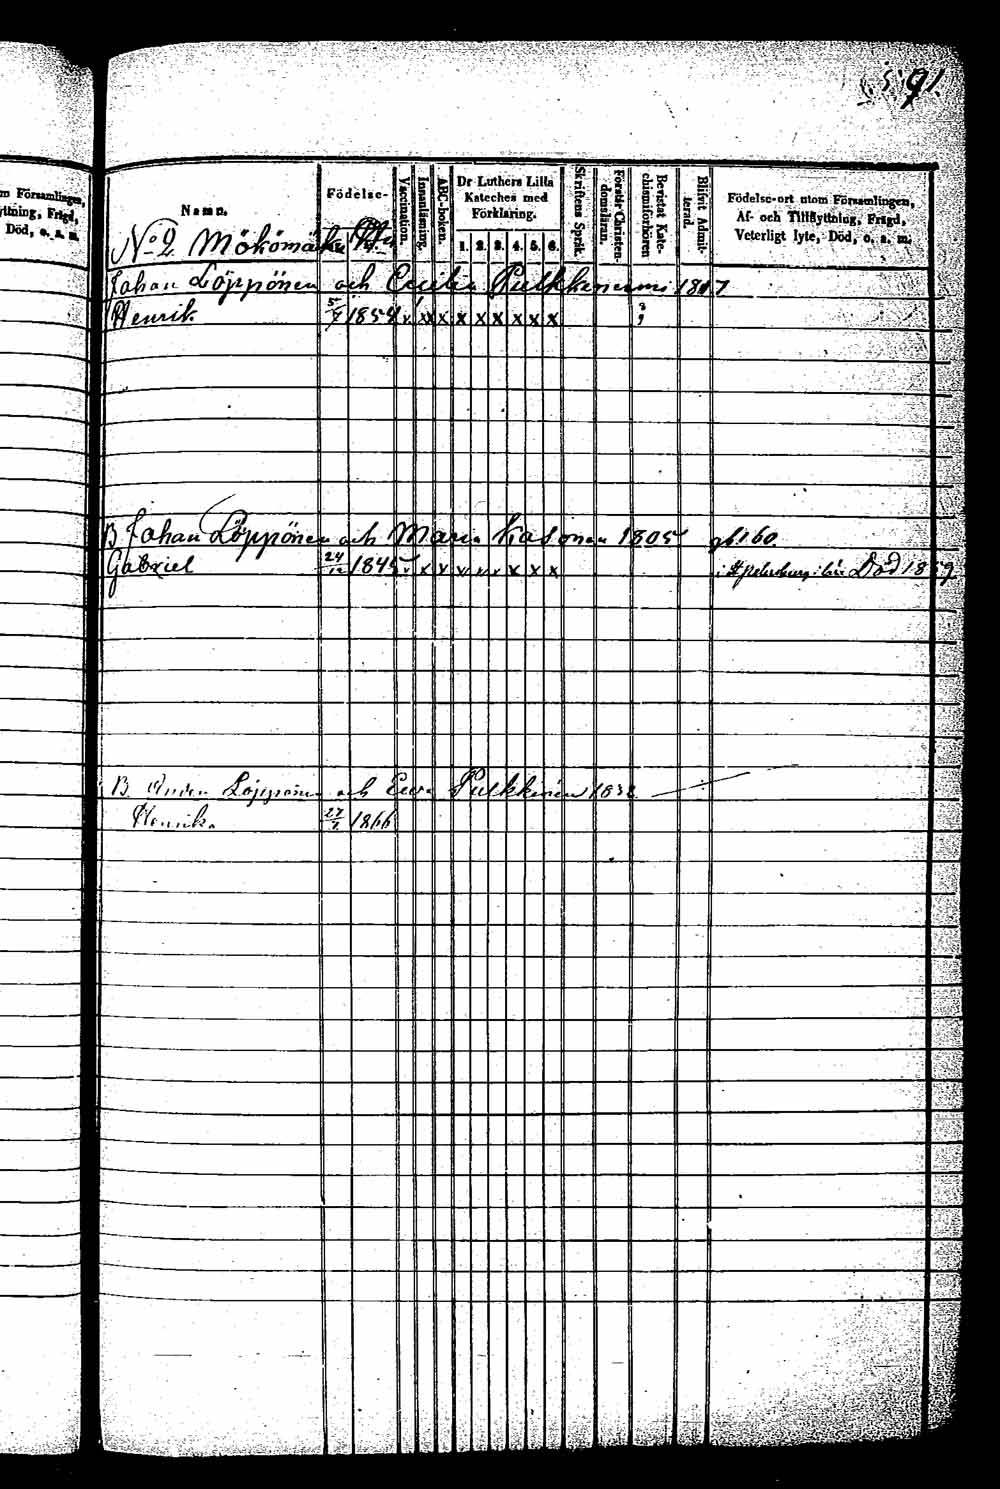 91.
m Församlingen,
yttning, Frägd,
Död, o. a. m.
Namn.
Födelse-
Vaccination.
Innanläsning.
ABC-boken.
Dr Luthers Lilla
Kateches med
Förklaring.
1. 2. 3. 4. 5. 6.
Skriftens Språk.
Förstår Christen-
domsläran.
Bevistat Kate-
chismiförhören
Blifvit Admit-
terad.
Födelse-ort utom Församlingen,
Af- och Tillflyttning, Frägd,
Veterligt lyte, Död, o. a. m.
No 2 Mökömäki
Johan Löppönen och Cecilia Pulkkinens 1817
Henrik 5/7 1854 x x x x x x x x x
B Johan Löppönen och Maria Kasonen 1805 160.
Gabriel 24/12 1845 x x x x x x x x i St petersburg Död 1859
B Löppönen och Eva Pulkkinen 1832
Henrik 27/1 1866